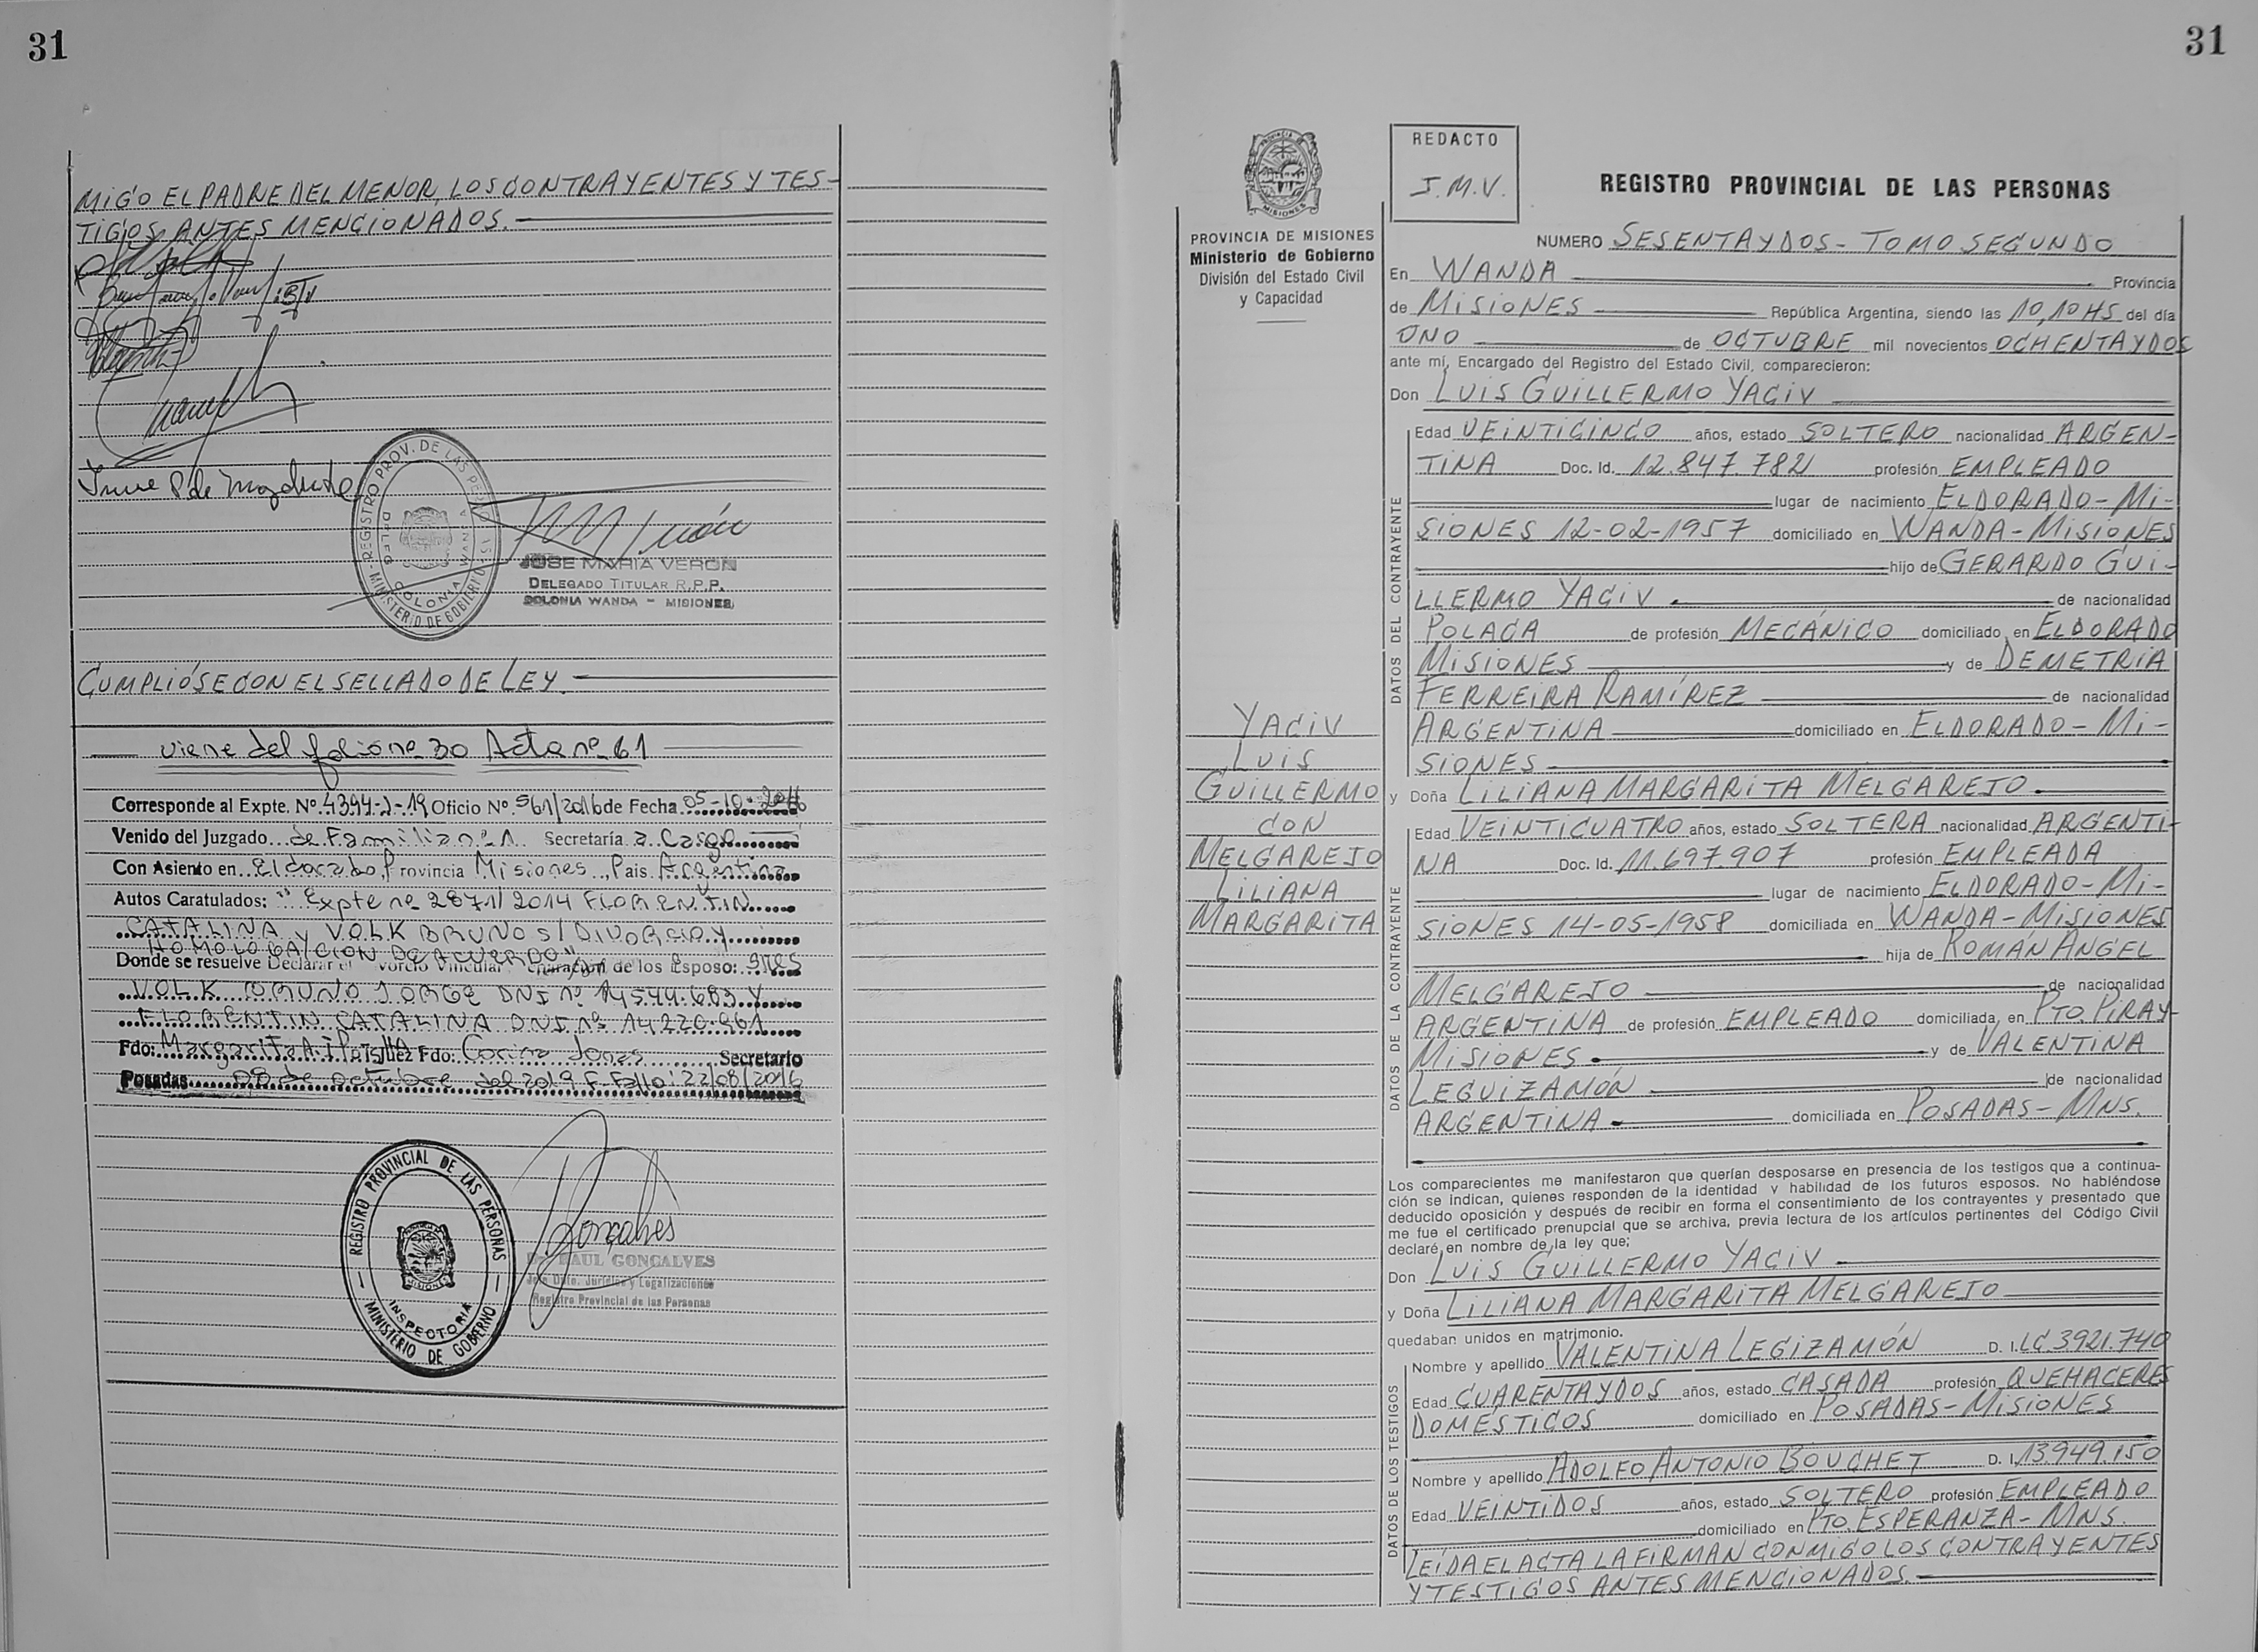 31
MIGO EL PADRE DEL MENOR, LOS CONTRAYENTES Y TES-
TIGOS ANTES MENCIONADOS.
REGISTRO PROV. DE LAS PERSONAS
MINISTERIO DE GOBIERNO
COLONIA WANDA
JOSE MARIA VERON
DELEGADO TITULAR R.P.P.
COLONIA WANDA - MISIONES
CUMPLIÓSE CON EL SELLADO DE LEY.
viene del folio nº 30 Acta nº 61
Corresponde al Expte. Nº 4394-J-19 Oficio Nº 561/2016 de Fecha 05-10-2016
Venido del Juzgado de Familia nº 1 Secretaría a Cargo
Con Asiento en Eldorado, Provincia Misiones, Pais Argentina
Autos Caratulados: "Expte nº 2871/2014 FLORENTIN
CATALINA y VOLK BRUNO S/DIVORCIO Y
HOMOLOGACION DE ACUERDO"
Donde se resuelve Declarar el Divorcio Vincular de los Esposo: SRES
VOLK BRUNO JORGE DNI nº 14.544.683 Y
FLORENTIN CATALINA DNI nº 14.220.961
Fdo: Margarita A. Juez Fdo: Corina Jones Secretario
Posadas 08 de octubre del 2019 F. Fallo 22/08/2016
REGISTRO PROVINCIAL DE LAS PERSONAS
INSPECTORIA
MINISTERIO DE GOBIERNO
Goncalves
RAUL GONCALVES
Jefe Dpto. Jurídico y Legalizaciones
Registro Provincial de las Personas
31
PROVINCIA DE MISIONES
Ministerio de Gobierno
División del Estado Civil
y Capacidad
YACIV
LUIS
GUILLERMO
CON
MELGAREJO
LILIANA
MARGARITA
REDACTO
J.M.V.
REGISTRO PROVINCIAL DE LAS PERSONAS
NUMERO SESENTA Y DOS - TOMO SEGUNDO
En WANDA Provincia
de MISIONES República Argentina, siendo las 10,10 HS del día
UNO de OCTUBRE mil novecientos OCHENTA Y DOS
ante mí, Encargado del Registro del Estado Civil, comparecieron:
Don LUIS GUILLERMO YACIV
DATOS DEL CONTRAYENTE
Edad VEINTICINCO años, estado SOLTERO nacionalidad ARGEN-
TINA Doc. Id. 12.847.782 profesión EMPLEADO
lugar de nacimiento ELDORADO - MI-
SIONES 12-02-1957 domiciliado en WANDA - MISIONES
hijo de GERARDO GUI-
LLERMO YACIV de nacionalidad
POLACA de profesión MECÁNICO domiciliado en ELDORADO
MISIONES y de DEMETRIA
FERREIRA RAMÍREZ de nacionalidad
ARGENTINA domiciliado en ELDORADO - MI-
SIONES
y Doña LILIANA MARGARITA MELGAREJO
DATOS DE LA CONTRAYENTE
Edad VEINTICUATRO años, estado SOLTERA nacionalidad ARGENTI-
NA Doc. Id. 11.697.907 profesión EMPLEADA
lugar de nacimiento ELDORADO - MI-
SIONES 14-05-1958 domiciliada en WANDA - MISIONES
hija de ROMÁN ANGEL
MELGAREJO de nacionalidad
ARGENTINA de profesión EMPLEADO domiciliada en PTO. PIRAY-
MISIONES y de VALENTINA
LEGUIZAMÓN de nacionalidad
ARGENTINA domiciliada en POSADAS - MNS.
Los comparecientes me manifestaron que querían desposarse en presencia de los testigos que a continua-
ción se indican, quienes responden de la identidad y habilidad de los futuros esposos. No habiéndose
deducido oposición y después de recibir en forma el consentimiento de los contrayentes y presentado que
me fue el certificado prenupcial que se archiva, previa lectura de los artículos pertinentes del Código Civil
declaré en nombre de la ley que;
Don LUIS GUILLERMO YACIV
y Doña LILIANA MARGARITA MELGAREJO
quedaban unidos en matrimonio.
DATOS DE LOS TESTIGOS
Nombre y apellido VALENTINA LEGIZAMÓN D. I. LC 3.921.740
Edad CUARENTA Y DOS años, estado CASADA profesión QUEHACERES
DOMÉSTICOS domiciliado en POSADAS - MISIONES
Nombre y apellido ADOLFO ANTONIO BOUCHET D. I. 13.949.150
Edad VEINTIDOS años, estado SOLTERO profesión EMPLEADO
domiciliado en PTO. ESPERANZA - MNS.
LEÍDA EL ACTA LA FIRMAN CONMIGO LOS CONTRAYENTES
Y TESTIGOS ANTES MENCIONADOS.